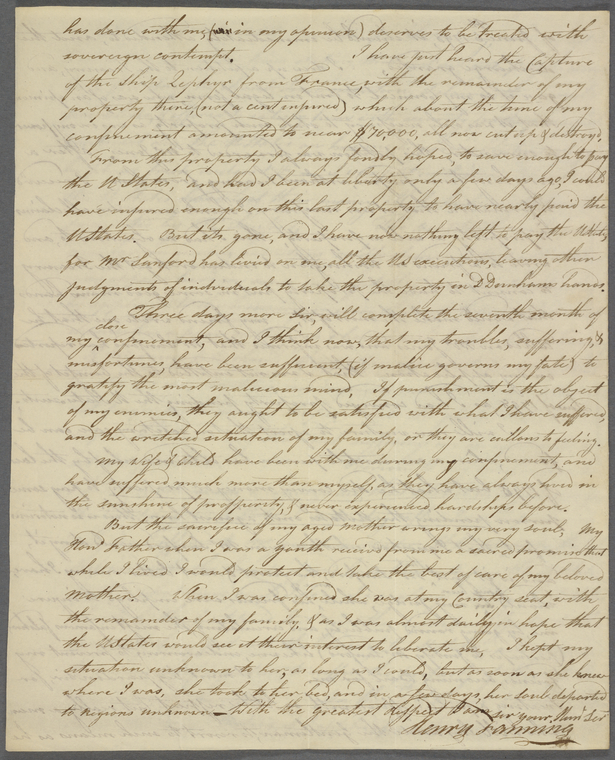 has done with me, (in my opinion) deserves to be treated with
sovereign contempt. I have just heard the Capture
of the Ship Zephyr from France, with the remainder of my
property there, (not a cent insured) which about the time of my
confinement amounted to near $70,000, all now cut up & destroyd.
From this property I always fondly hoped, to save enough to pay
the U States, and had I been at liberty only a few days ago, I could
have insured enough on this last property to have nearly paid the
UStates. But its gone, and I have now nothing left to pay the UStates
for Mr Sanford has livid on me, all the US executions, leaving other
judgments of individuals to take the property in D Dunhams hands.
Three days more Sir will complete the seventh month of
my close confinement, and I think now, that my troubles, suffering, &
misfortunes, have been sufficient, (if malice governs my fate) to
gratify the most malicious mind. If punishment is the object
of my enemies, they ought to be satisfied with what I have suffered,
and the wretched situation of my family, or they are callous to feeling.
My Wife & Child have been with me during my confinement, and
have suffered much more than myself, as they have always lived in
the sunshine of prosperity, & never experienced hardships before.
But the sacrifice of my aged Mother wrings my very soul; My
Hond Father when I was a youth receivd from me a sacred promise that
while I lived I would protect and take the best of care of my beloved
Mother! When I was confined she was at my Country seat, with
the remainder of my family, & as I was almost daily in hope that
the UStates would see it their interest to liberate me, I kept my
situation unknown to her, as long as I could, but as soon as she knew
where I was, she took to her bed, and in a few days, her soul departed
to regions unknown — With the greatest respect I am Sir your Huml Ser
Henry Fanning